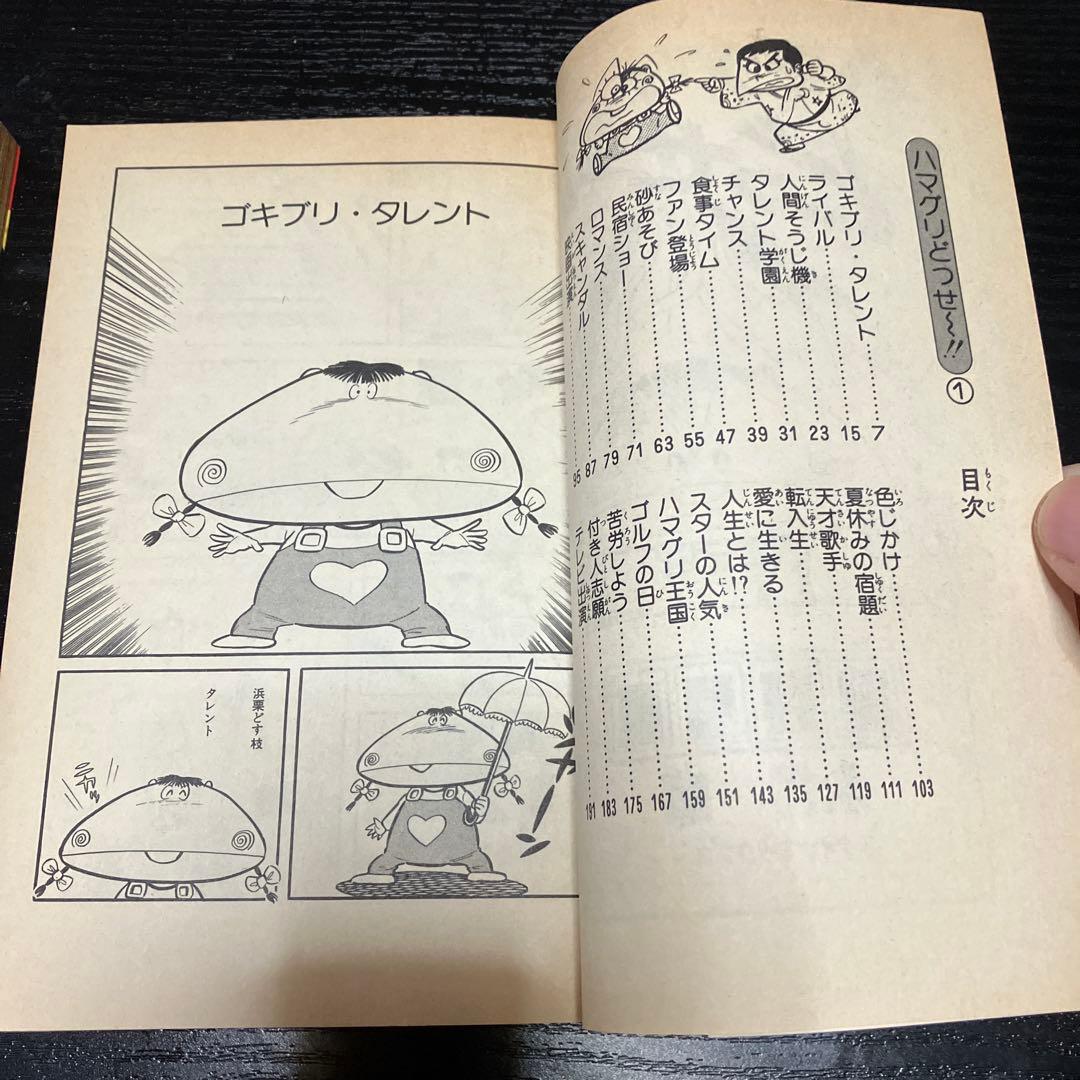 ハマグリどっせ〜!! ①
目次
ゴキブリ・タレント……7
ライバル……15
人間そうじ機……23
タレント学園……31
チャンス……39
食事タイム……47
ファン登場……55
砂あそび……63
民宿ショー……71
ロマンス……79
スキャンダル……87
95
色じかけ……103
夏休みの宿題……111
天才歌手……119
転入生……127
愛に生きる……135
人生とは!?……143
スターの人気……151
ハマグリ王国……159
ゴルフの日……167
苦労しよう……175
付き人志願……183
テレビ出演……191
ゴキブリ・タレント
浜栗どす枝
タレント